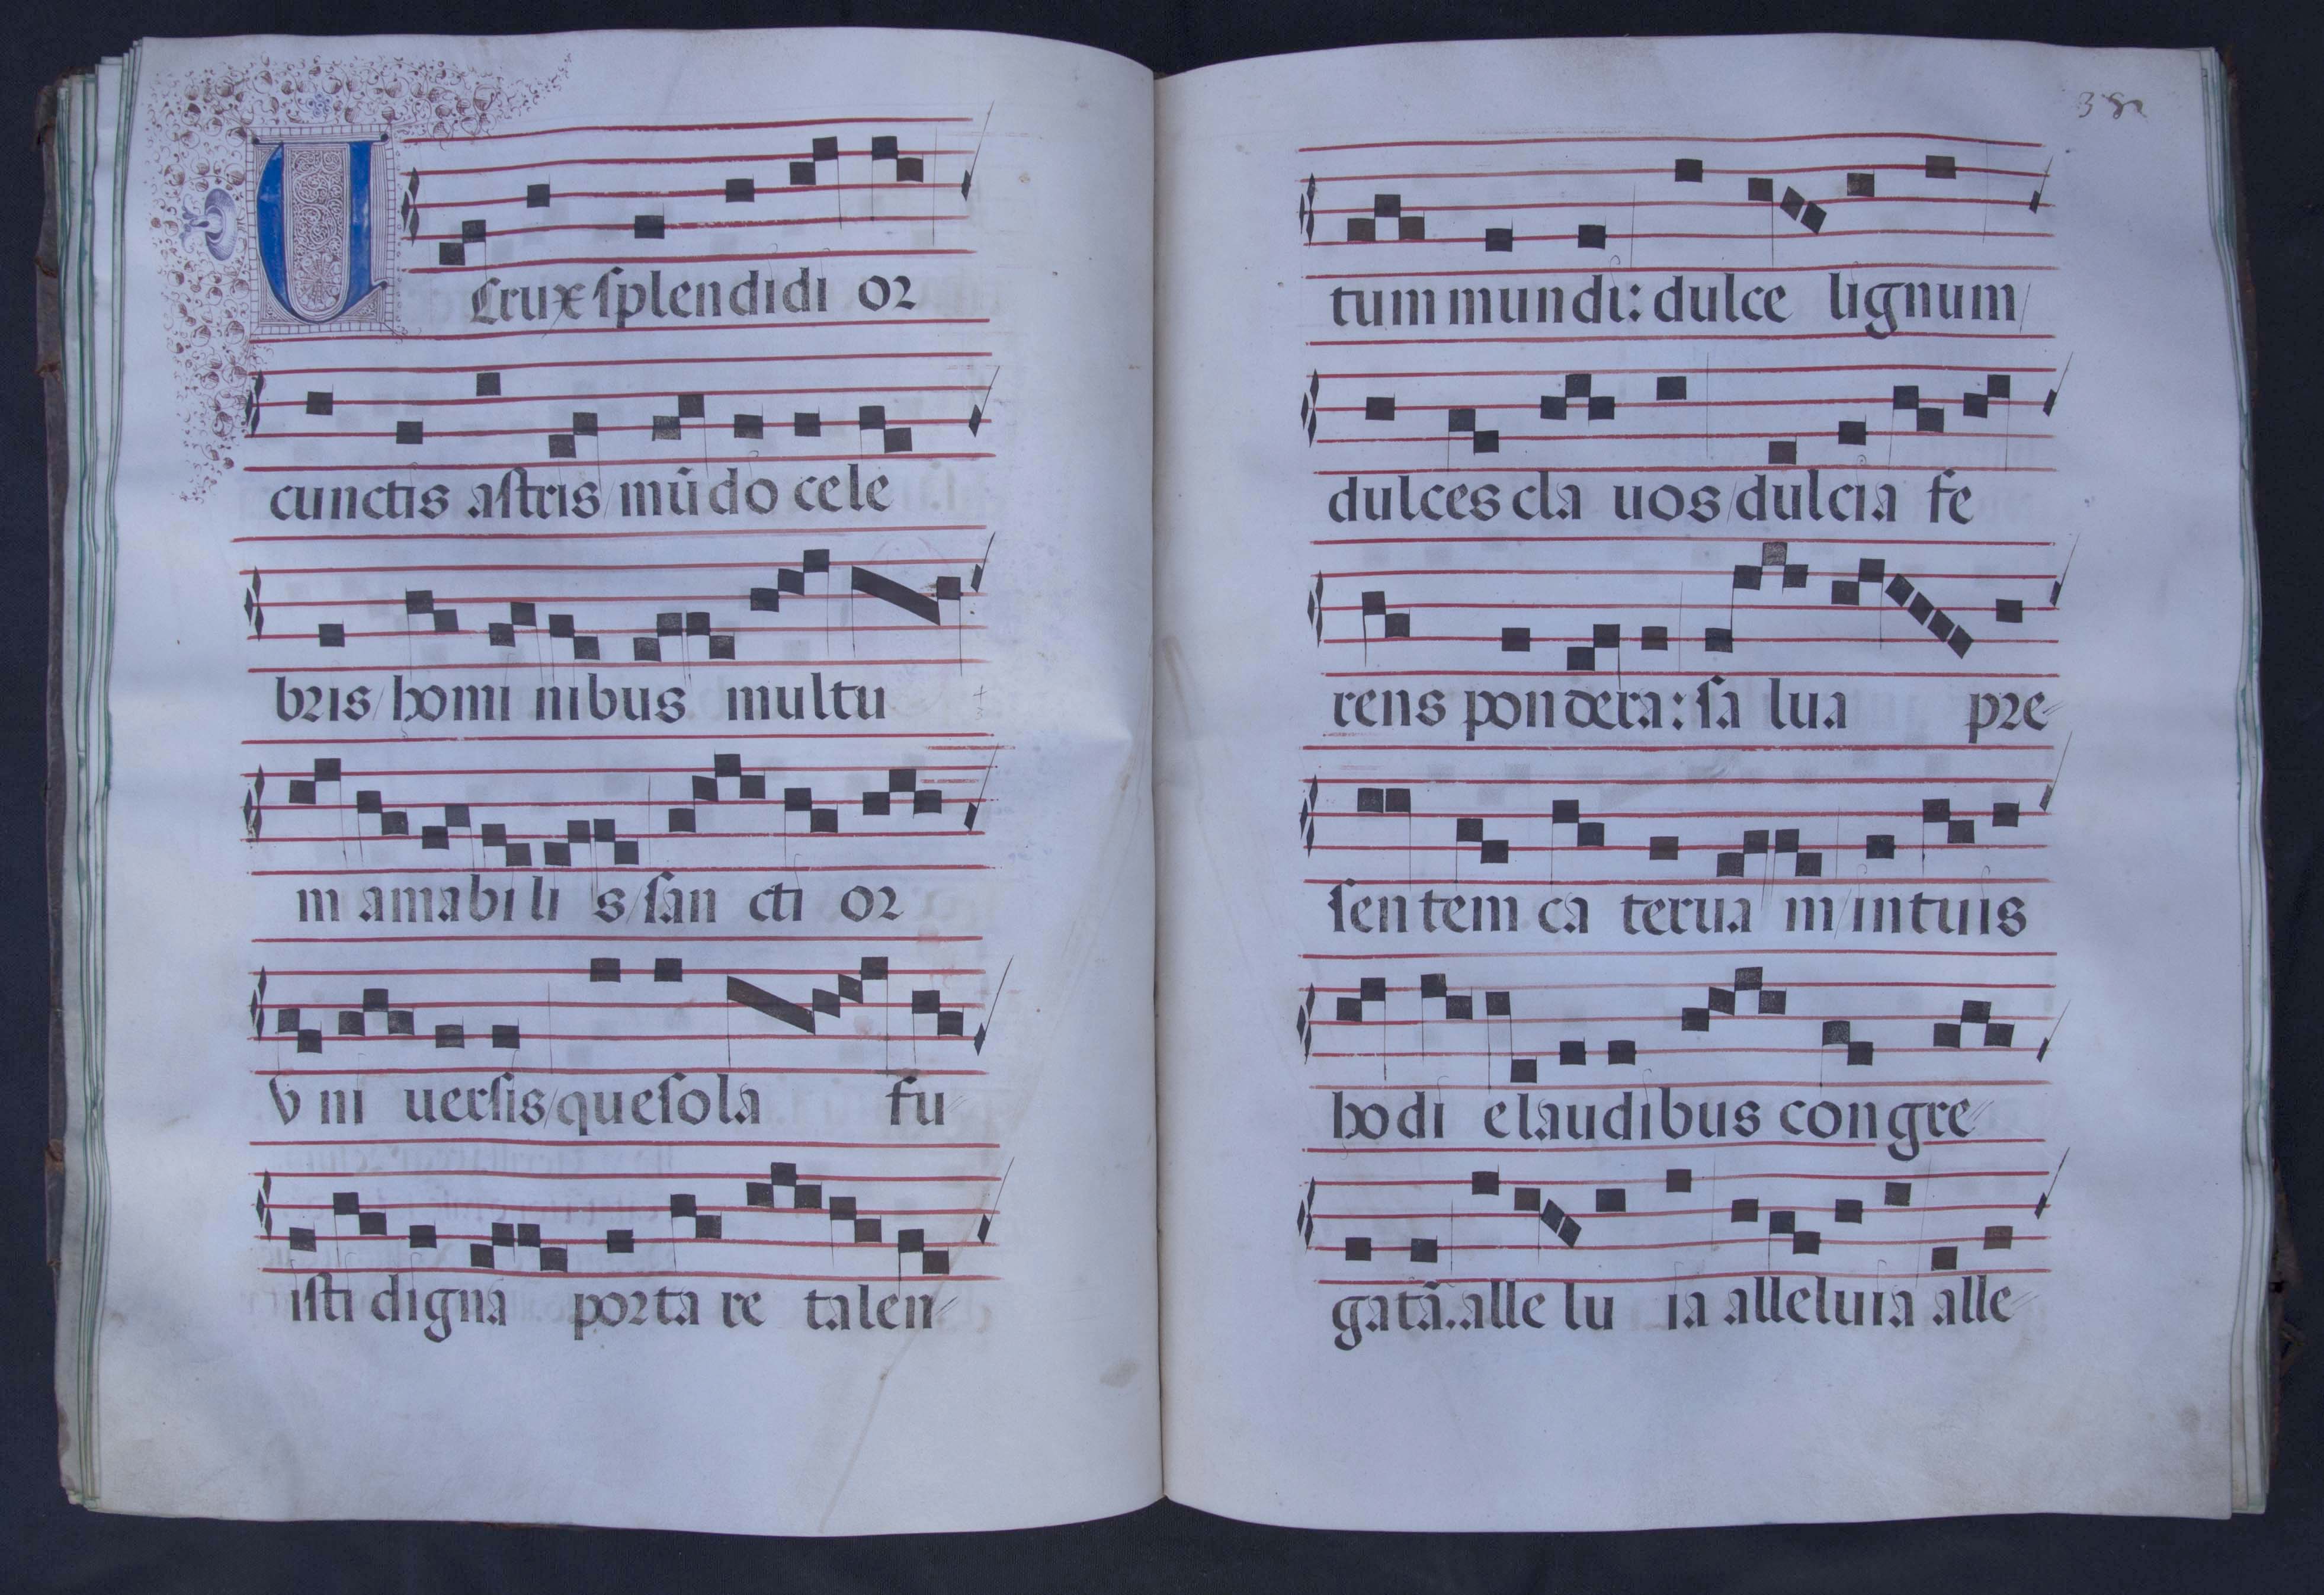 U Crux splendidi or
cunctis astris/mũdo cele
bris/homi nibus multu
m amabi li s/san cti or
v ni uersis/quesola fu
isti digna porta re talen
38
tum mundi: dulce lignum/
dulces cla uos/dulcia fe
rens pondera: sa lua pre
sen tem ca terua m/intuis
hodi elaudibus congre
gatã.alle lu ia alleluia alle